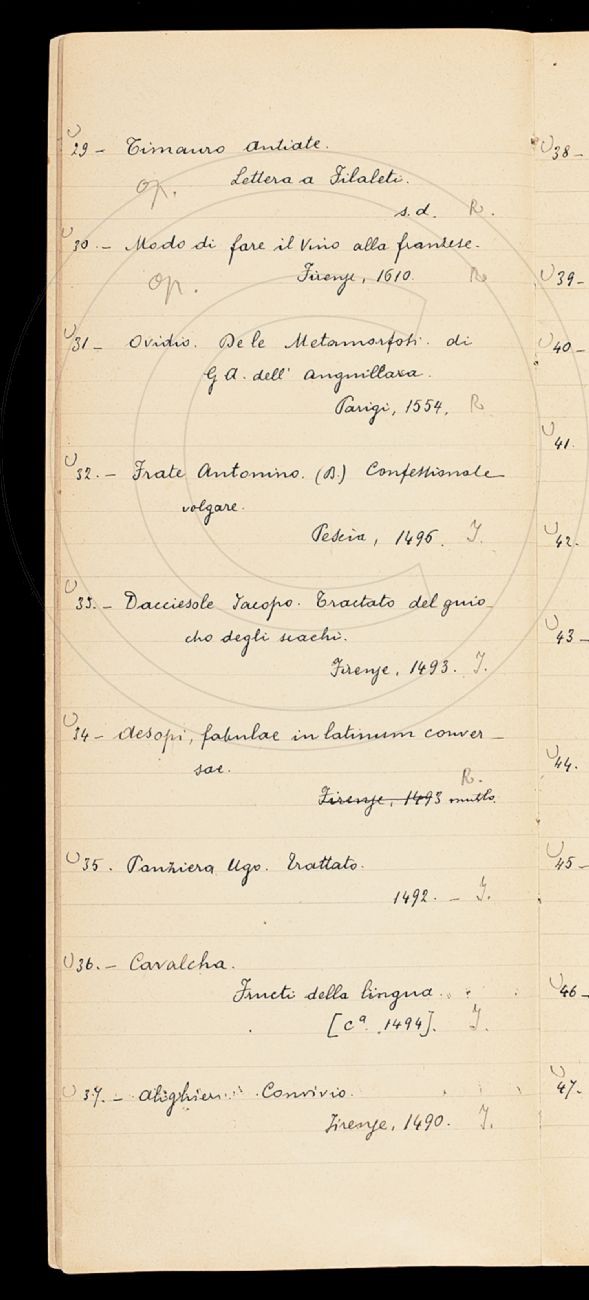 29 - Timauro Antiate.
op. Lettera a Filaleti.
s.d. R.
30. - Modo di fare il vino alla franzese.
op. Firenze, 1610. R.
31 - Ovidio. De le Metamorfosi. di
G A. dell' Anguillara.
Parigi, 1554. R
32. - Frate Antonino. (B.) Confessionale
volgare.
Pescia, 1495. I.
33. - Dacciesole Iacopo. Tractato del guio-
cho degli scachi.
Firenze, 1493. I.
34 - Aesopi, fabulae in latinum conver-
sae.
R.
Firenze, 1493 mutlo.
35. Panziera Ugo. Trattato.
1492. - I.
36. - Cavalcha.
Fructi della lingua
[cª. 1494]. I.
37. - Alighieri Convivio.
Firenze, 1490. I.
38 -
39 -
40 -
41.
42.
43 -
44.
45 -
46 -
47.